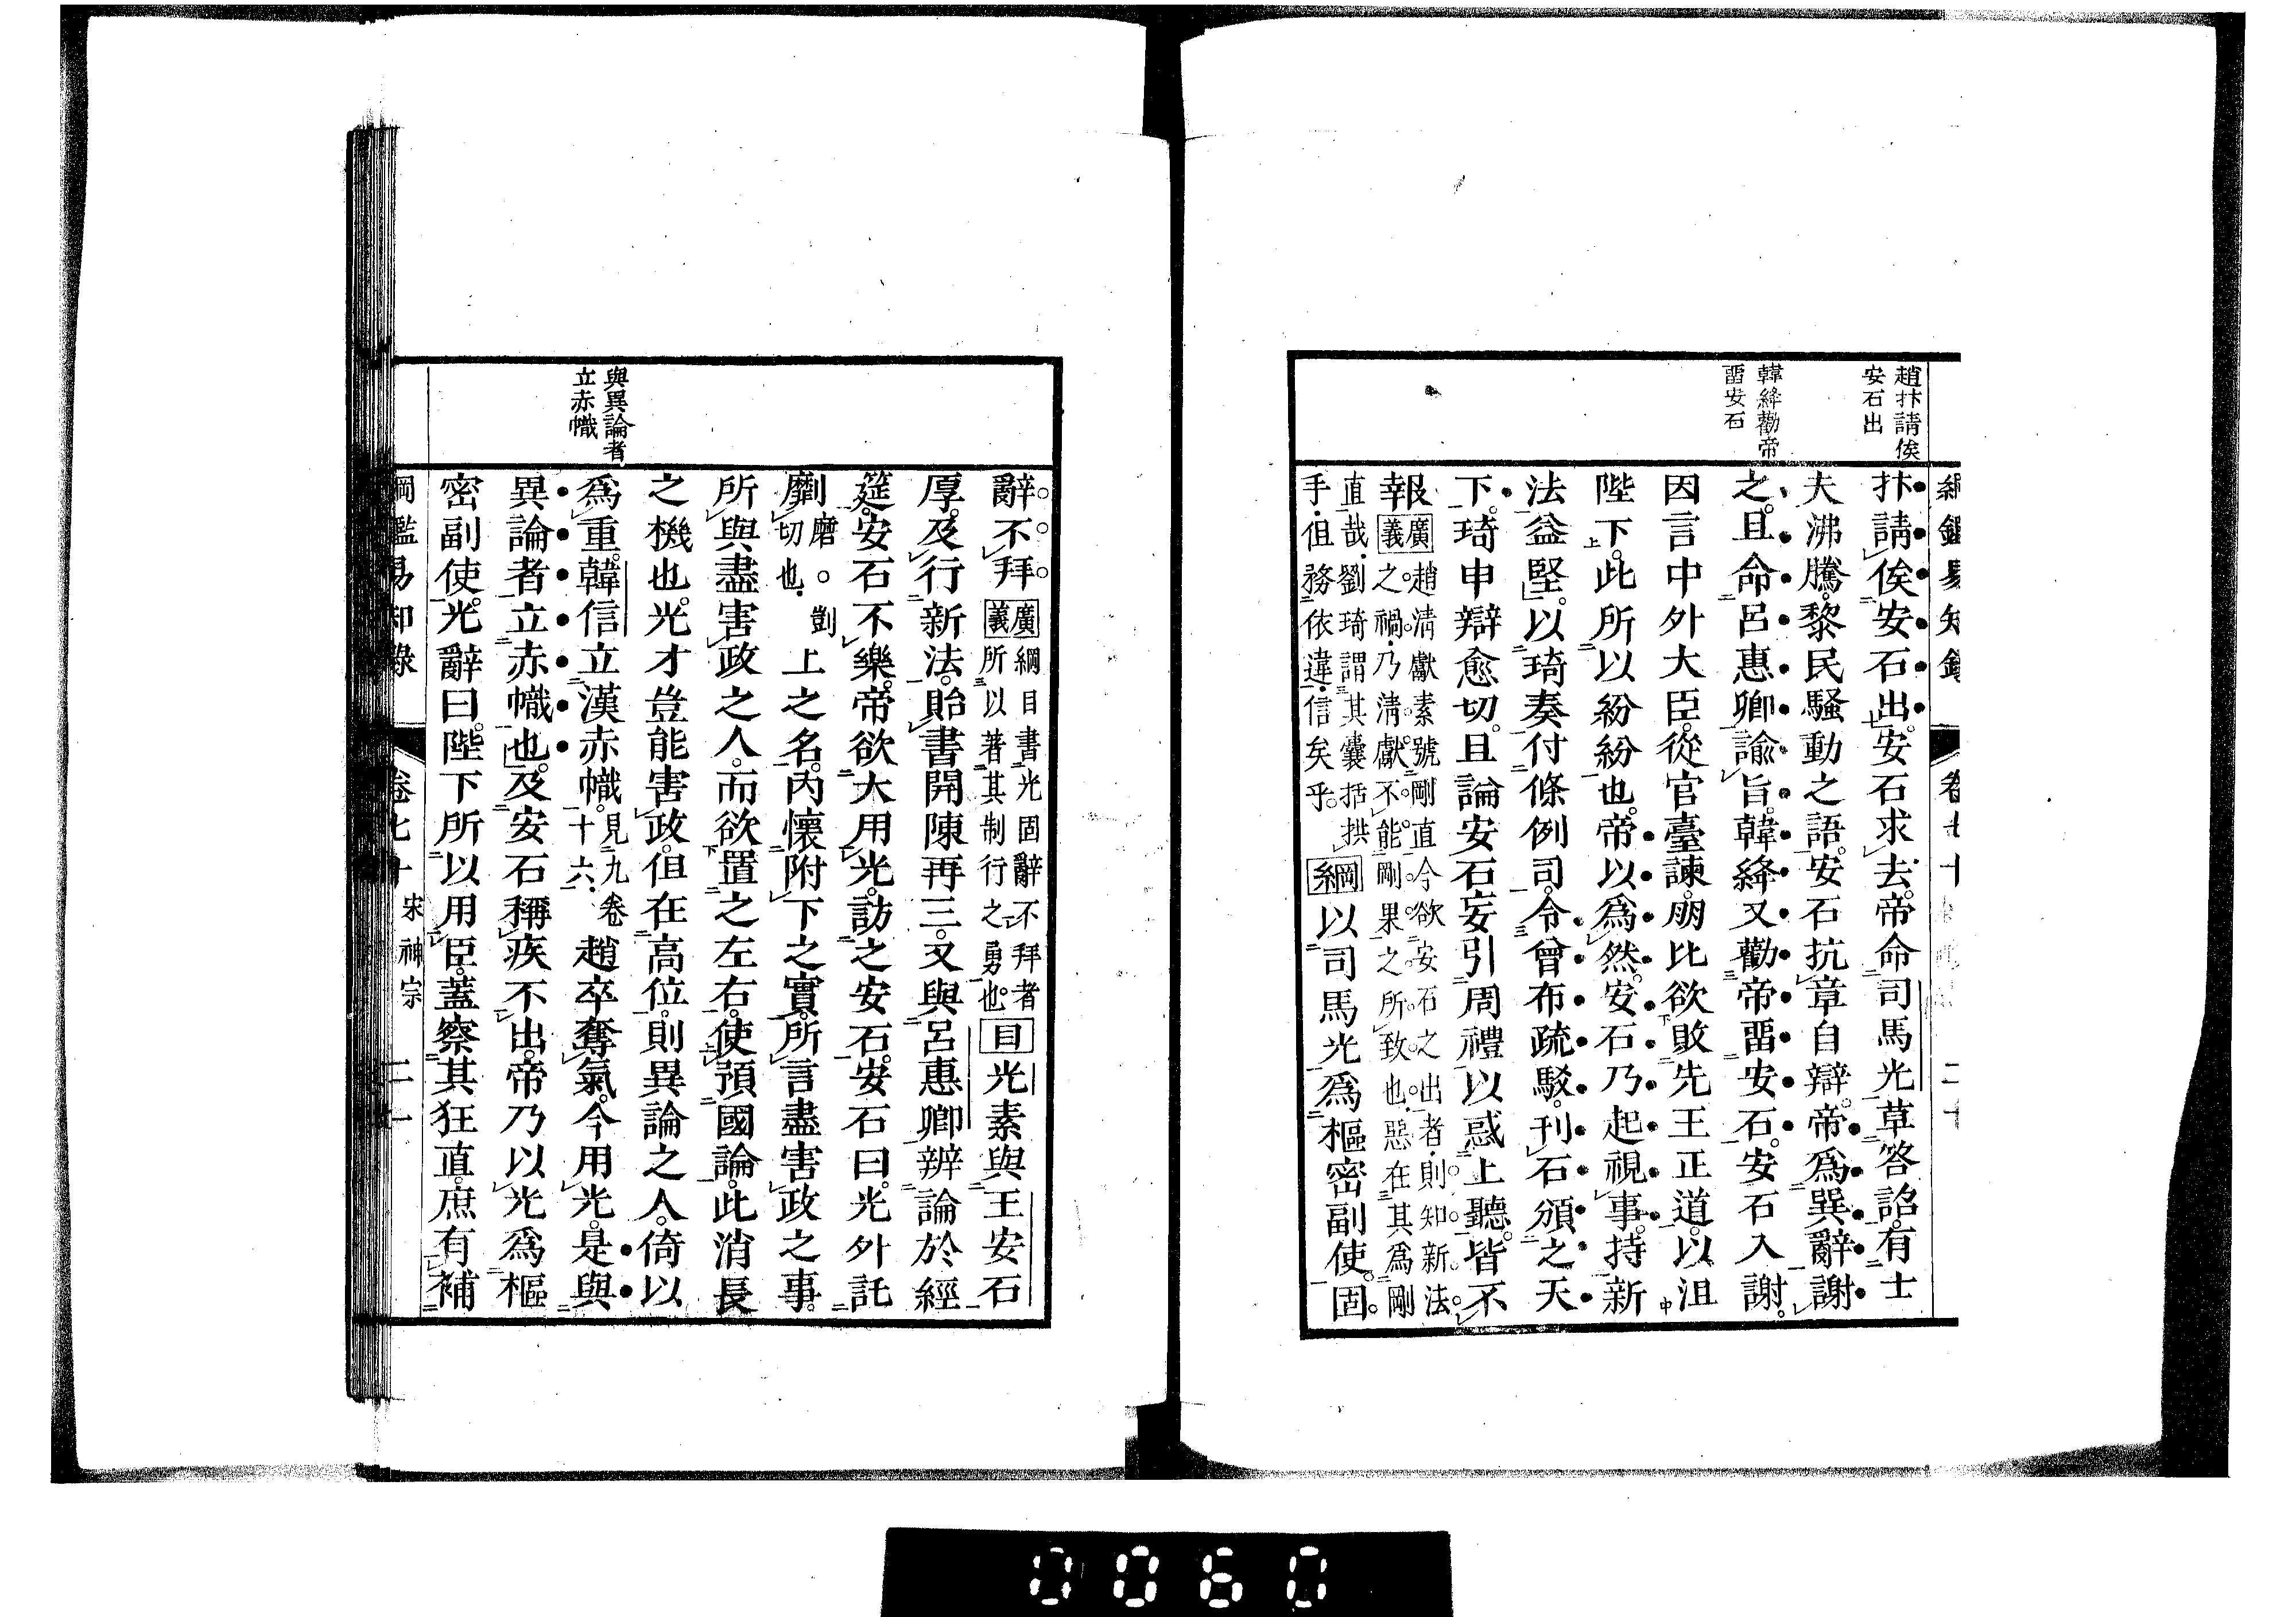 綱鑑易知錄　卷七十　二十
趙抃請俟
安石出
韓絳勸帝
畱安石
抃請俟安石出。安石求去。帝命司馬光草答詔。有士
夫沸騰。黎民騷動之語。安石抗章自辯。帝爲巽辭謝
之。且命呂惠卿諭旨。韓絳又勸帝畱安石。安石入謝。
因言中外大臣。從官臺諫。朋比欲敗先王正道。以沮
陛下。此所以紛紛也。帝以爲然。安石乃起視事。持新
法益堅。以琦奏付條例司。令曾布疏駁。刊石頒之天
下。琦申辯愈切。且論安石妄引周禮以惑上聽。皆不
報
廣義
趙清獻素號剛直今欲安石之出者則知新法。
之禍乃清獻不能剛果之所致也惡在其爲剛
直哉劉琦謂其囊括拱
手但務依違信矣乎。
綱以司馬光爲樞密副使。固
辭不拜
廣義
綱目書光固辭不拜者
所以著其制行之勇也。
目光素與王安石
厚。及行新法。貽書開陳再三。又與呂惠卿辨論於經
筵。安石不樂。帝欲大用光。訪之安石。安石曰。光外託
劘
磨。剴
切也
上之名。內懷附下之實。所言盡害政之事。
所與盡害政之人。而欲置之左右。使預國論。此消長
之機也。光才豈能害政。但在高位。則異論之人。倚以
爲重。韓信立漢赤幟。
見九卷
十六
趙卒奪氣。今用光。是與
異論者立赤幟也。及安石稱疾不出。帝乃以光爲樞
密副使。光辭曰。陛下所以用臣。蓋察其狂直。庶有補
與異論者
立赤幟
綱鑑易知錄　卷七十　宋神宗　二一
0060